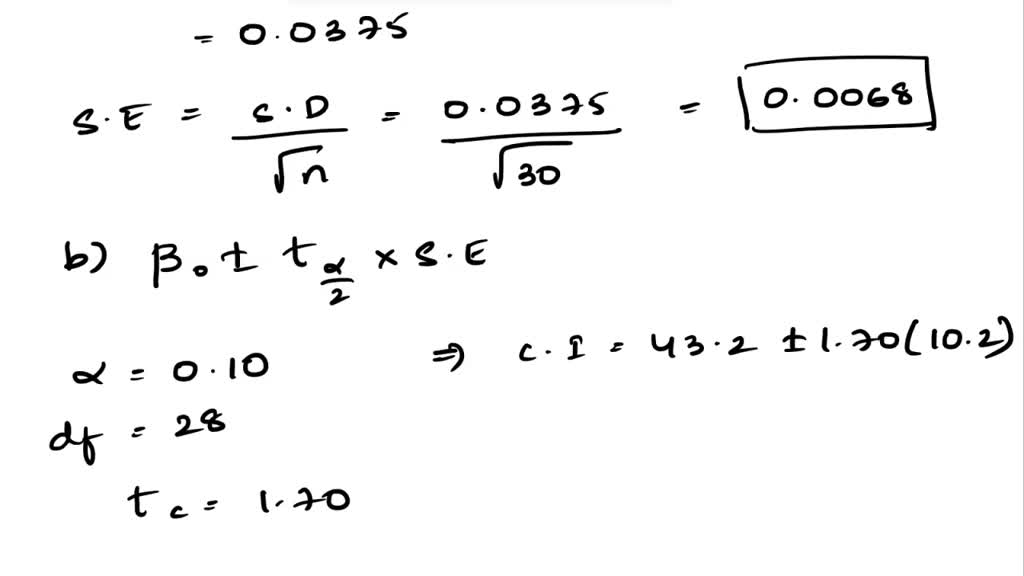 = 0.0375
S.E = S.D / √n = 0.0375 / √30 = 0.0068
b) β₀ ± t α/2 × S.E
α = 0.10 ⇒ C.I = 43.2 ± 1.70(10.2)
df = 28
t c = 1.70